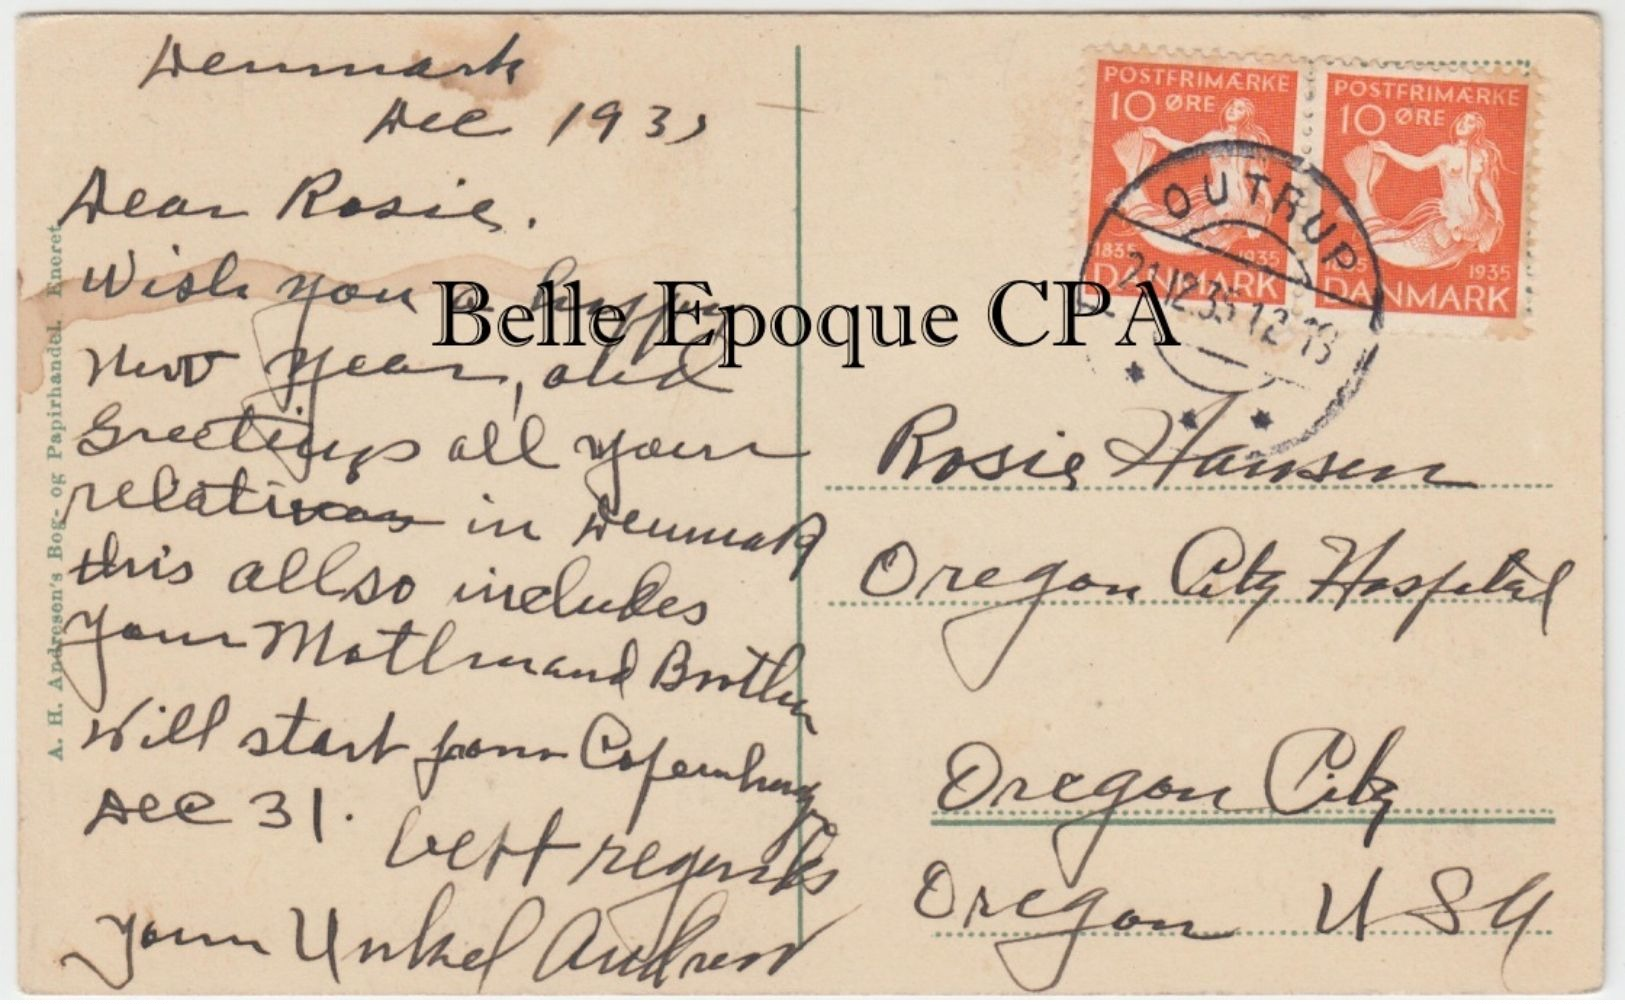 Denmark
Dec 1935
Dear Rosie.
Wish you a happy
new year, and
Greetings all your
relatives in Denmark
this allso includes
your Mother and Brother
Will start from Copenhag
Dec 31.
best regards
your Unkel Andrew
A. H. Andresen's Bog- og Papirhandel. Eneret
Belle Epoque CPA
POSTFRIMÆRKE
10 ØRE
1835 1935
DANMARK
POSTFRIMÆRKE
10 ØRE
1835 1935
DANMARK
OUTRUP
21.12.35.12-13
Rosie Hansen
Oregon City Hospital
Oregon City
Oregon U S A